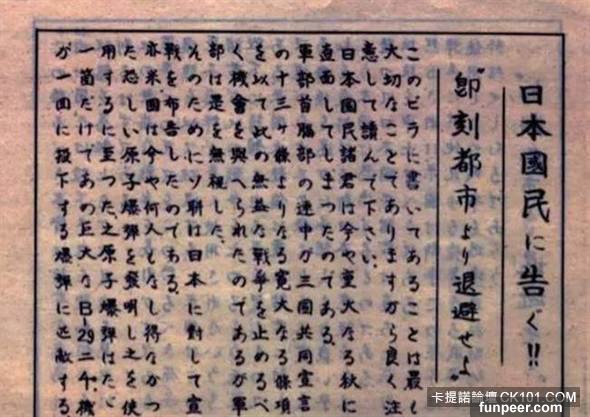 日本國民に告ぐ!!
"即刻都市より退避せよ"
このビラに書いてあることは最も
大切なことでありますから良く注
意して讀んで下さい。
日本國民諸君は今や重大なる秋に
直面してしまつたのである。
軍部首腦部の連中が三國共同宣言
の十三ケ條よりなる寛大なる條項
を以て此の無益な戰爭を止めるべ
く機會を與へられたのであるが軍
部は是を無視した。
そのためにソ聯は日本に對して宣
戰を布告したのである。
亦米國は今や何人もなし得なかつ
た恐しい原子爆彈を發明し之を使
用するに至つた。之原子爆彈はたゞ
一箇だけであの巨大なB-29二千機
が一回に投下する爆彈に匹敵する
卡提諾論壇CK101.COM
funpeer.com